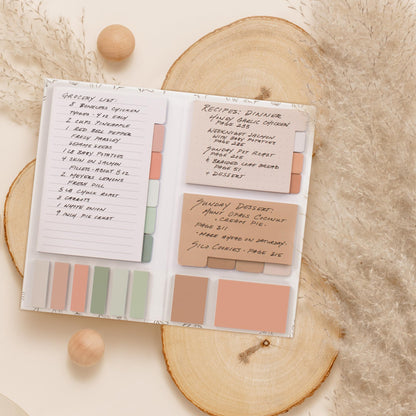 GROCERY LIST:
3 BONELESS CHICKEN
THIGHS - 4 OZ EACH
2 CUPS PINEAPPLE
1 RED BELL PEPPER
FRESH PARSLEY
SESAME SEEDS
1 LB BABY POTATOES
4 SKIN ON SALMON
FILLETS - ABOUT 8 OZ
2 MEYERS LEMONS
FRESH DILL
5 LB CHUCK ROAST
2 CARROTS
1 WHITE ONION
9 INCH PIE CRUST
RECIPES: DINNER
HONEY GARLIC CHICKEN
PAGE 235
WEEKNIGHT SALMON
WITH BABY POTATOES
PAGE 225
SUNDAY POT ROAST
PAGE 205
& BRAIDED LOAF BREAD
PAGE 51
& DESSERT
SUNDAY DESSERT:
AUNT OPALS COCONUT
CREAM PIE.
PAGE 211
- MAKE AHEAD ON SATURDAY.
SILO COOKIES - PAGE 215